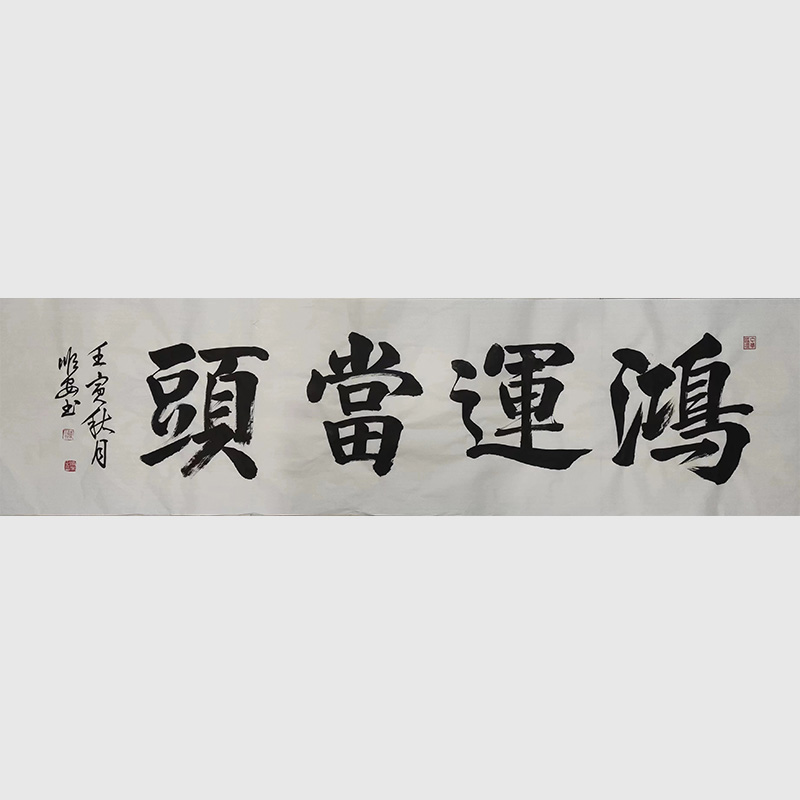 鴻運當頭
壬寅秋月
順安書